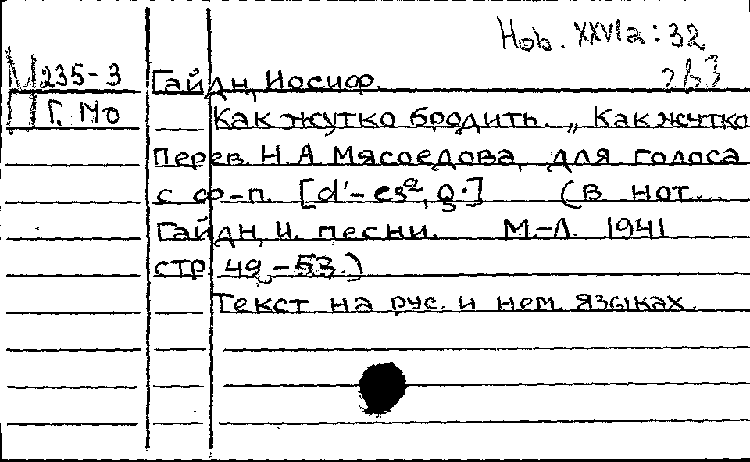 Hob. XXVIa : 32
М 235-3 Гайдн, Иосиф.
П Г. Мо Как жутко бродить. „Как жутко
Перев. Н.А. Мясоедова, для голоса
с ф-п. [d'-es², g.] (в нот.
Гайдн, И. песни. М.-Л. 1941
стр. 49-53.)
Текст на рус. и нем. языках.